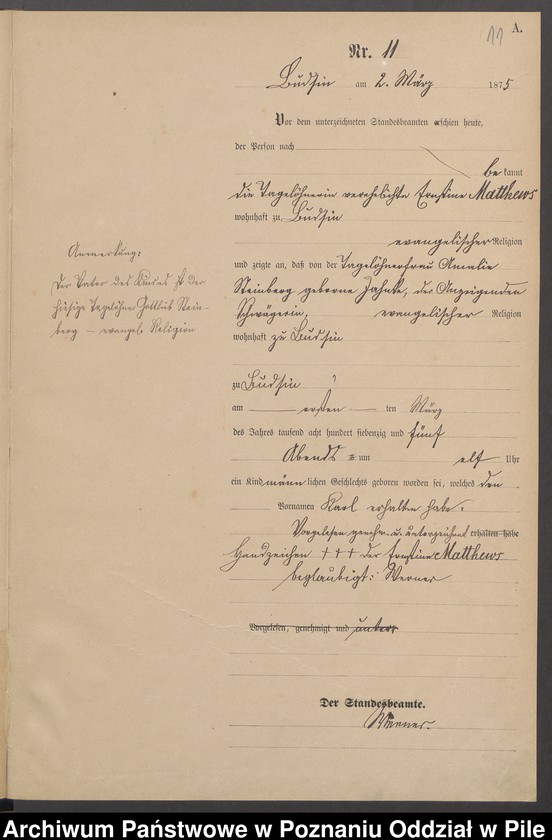 11 A.
Nr. 11
Budsin am 2. März 1875
Vor dem unterzeichneten Standesbeamten erschien heute,
der Person nach
bekannt
die Tagelöhnerin verehelichte Ernstine Matthews
wohnhaft zu Budsin
evangelischer Religion
und zeigte an, daß von der Tagelöhnerfrau Amalie
Steinberg geborne Jahnke, der Anzeigenden
Schwägerin, evangelischer Religion
wohnhaft zu Budsin
zu Budsin
am ersten ten März
des Jahres tausend acht hundert siebenzig und fünf
Abends um elf Uhr
ein Kind männlichen Geschlechts geboren worden sei, welches den
Vornamen Karl erhalten habe.
Vorgelesen genehm. u. unterzeichnet erhalten habe
Handzeichen +++ der Ernstine Matthews
beglaubigt: Werner
Vorgelesen, genehmigt und unter
Der Standesbeamte.
Werner.
Anmerkung:
Der Vater des Kindes ist der
hiesige Tagelöhner Gottlieb Stein-
berg – evangel. Religion
Archiwum Państwowe w Poznaniu Oddział w Pile